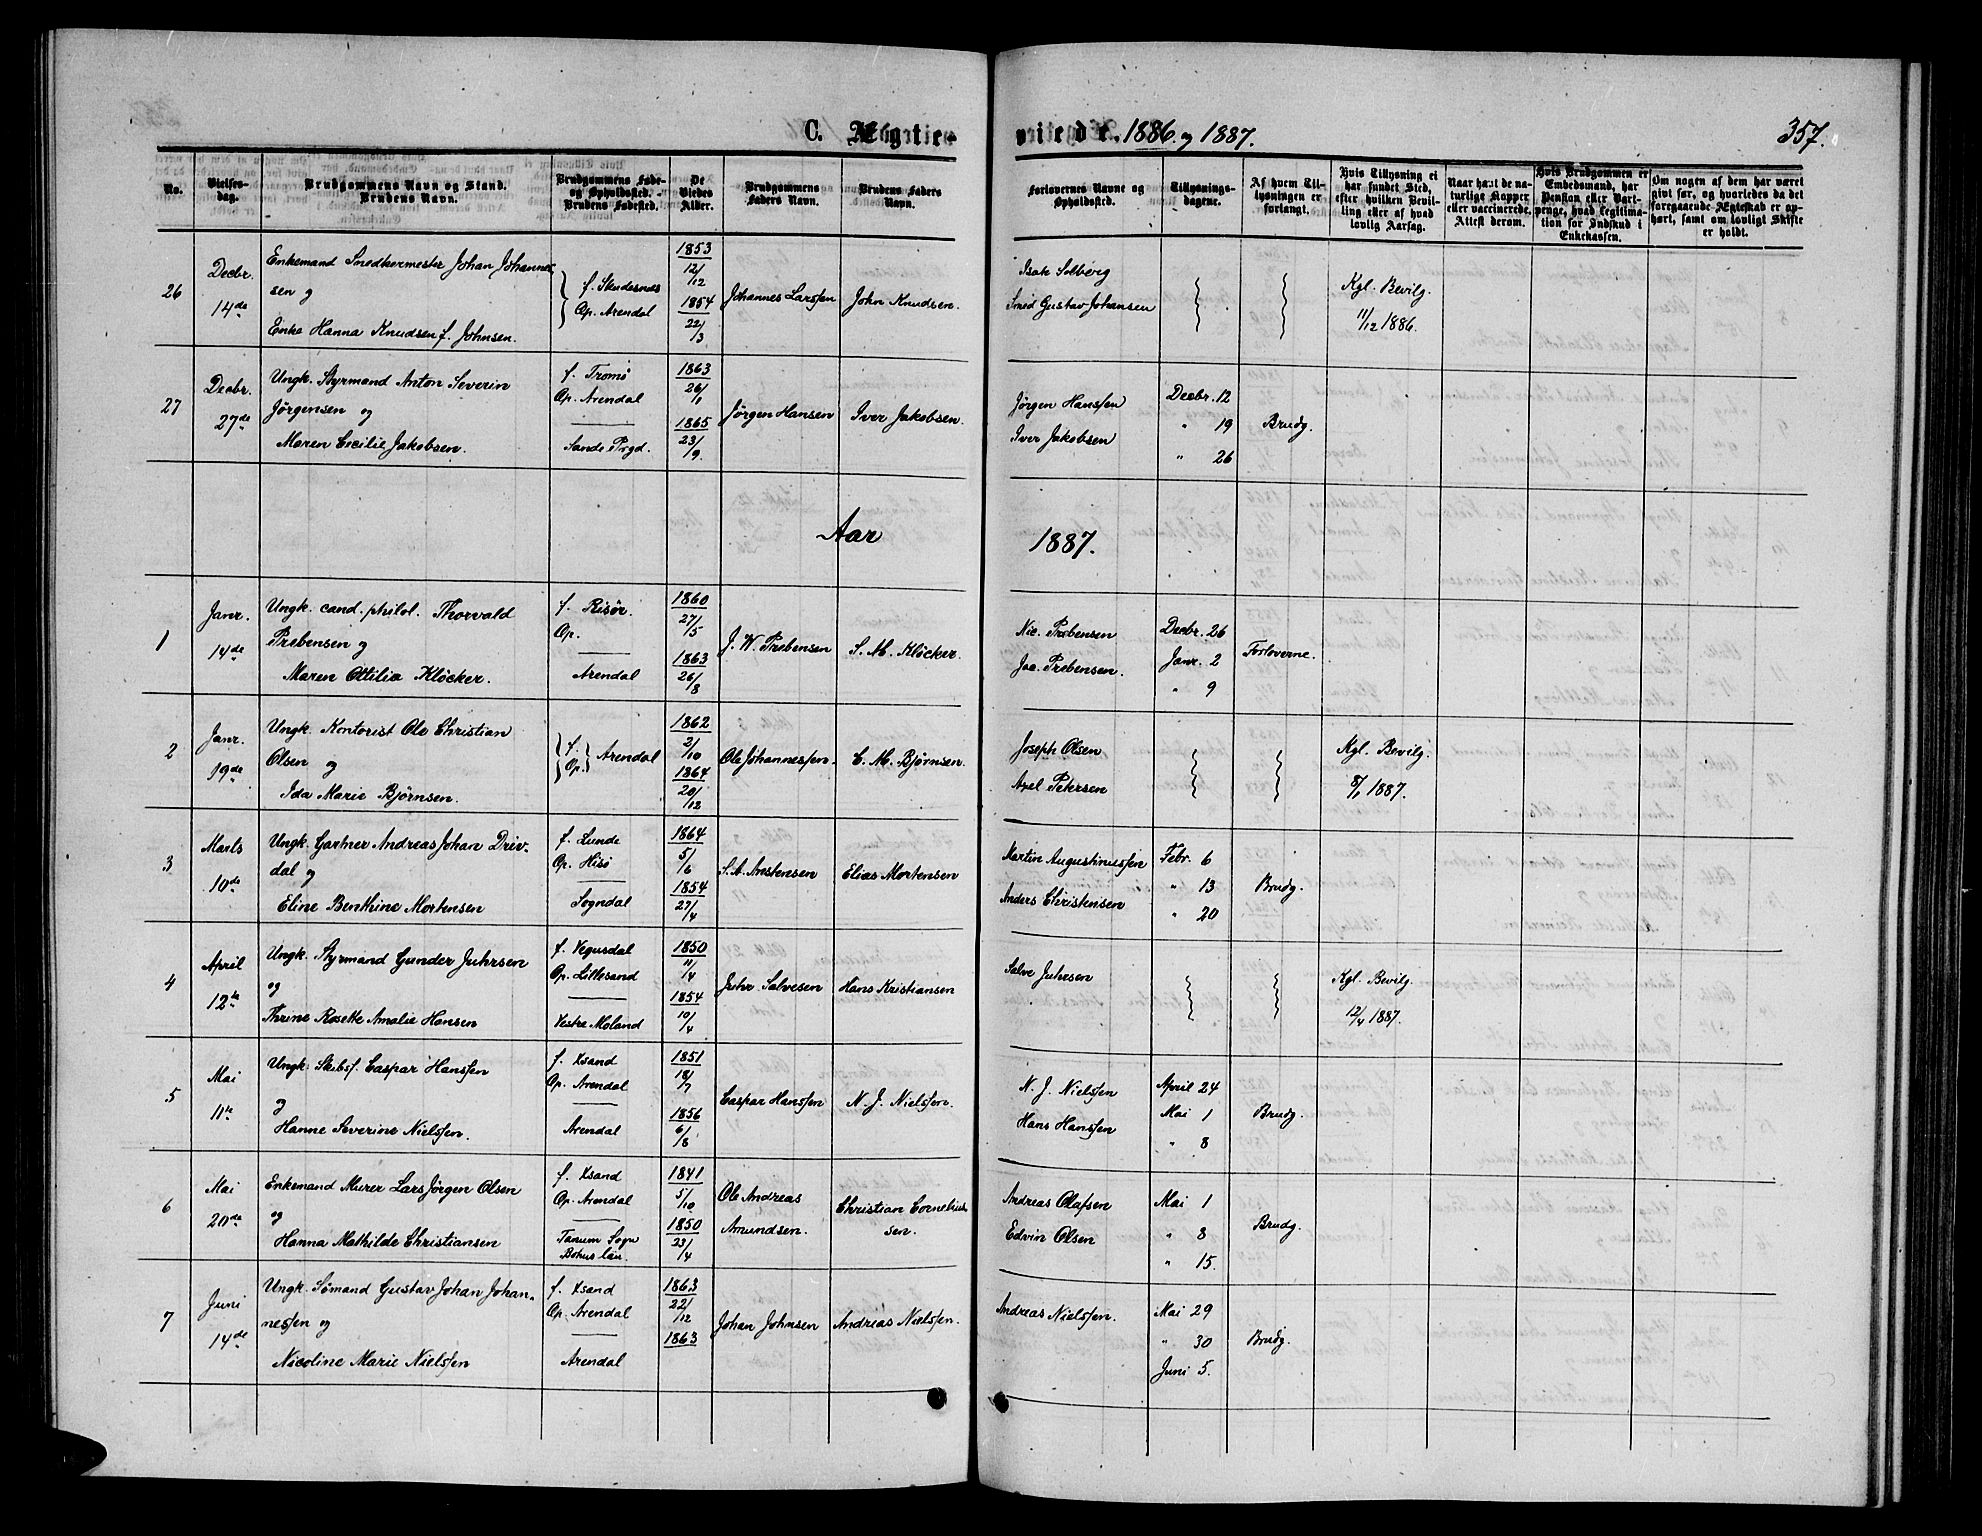 C. Ægte-
viede. 1886 og 1887.
357.
No.
Vielses-
dag.
Brudgommens Navn og Stand.
Brudens Navn.
Brudgommens Føde-
og Opholdssted.
Brudens Fødested.
De
Viedes
Alder.
Brudgommens
Faders Navn.
Brudens Faders
Navn.
Forlovernes Navne og
Opholdssted.
Tillysnings-
dagene.
Af hvem Til-
lysningen er
forlangt.
Hvis Tillysning ei
har fundet Sted,
efter hvilken Bevil-
ling eller af hvad
lovlig Aarsag.
Naar havt de na-
turlige Kopper
eller vaccinerede.
Attest derom.
Hvis Brudgommen er
Embedsmand, har
Pension eller Vart-
penge, hvad Legitima-
tion for Indskud i
Enkekassen.
Om nogen af dem har været
gift før, og hvorledes da det
foregaaende Ægteskab er op-
hørt, samt om lovligt Skifte
er holdt.
26
Decbr.
14de
Enkemand Snedkermester Johan Johannes-
sen og
Enke Hanna Knudsen f. Johnsen.
f. Skudesnes
Op. Arendal
1853
12/12
1854
22/3
Johannes Larssen
John Knudsen.
Isak Solberg
Smed Gustav Johansen
Kgl. Bevilg.
11/12 1886.
27
Decbr.
27de
Ungk. Styrmand Anton Severin
Jørgensen og
Maren Cecilie Jakobsen.
f. Tromø
Op. Arendal
Sande Prgd.
1863
26/1
1865
23/9.
Jørgen Hansen
Iver Jakobsen.
Jørgen Hanssen
Iver Jakobsen
Decbr. 12
" 19
" 26
Brudg.
Aar
1887.
1
Janr.
14de
Ungk. cand. philol. Thorvald
Prebensen og
Maren Ottilia Kløcker.
f. Risør.
Op.
Arendal
1860
27/5
1863
26/8
J. W. Prebensen
S. M. Kløcker.
Nic. Prebensen
Jac. Prebensen.
Decbr. 26
Janr. 2
" 9
Forloverne.
2
Janr.
19de
Ungk. Kontorist Ole Christian
Olsen og
Ida Marie Bjørnsen.
f.
Op. Arendal
1862
2/10
1864
20/12
Ole Johannessen.
C. M. Bjørnsen.
Joseph Olsen
Axel Petersen
Kgl. Bevilg.
8/1 1887.
3
Marts
10de
Ungk. Gartner Andreas Johan Driv-
dal og
Eline Benthine Mortensen
f. Lunde
Op. Hisø
Sogndal
1864
5/6
1854
27/4
S. A. Anstensen
Elias Mortensen
Martin Augustinussen
Anders Christensen
Febr. 6
" 13
" 20
Brudg.
4
April
12te
Ungk. Styrmand Gunder Juhrsen
og
Thrine Rosette Amalie Hansen
f. Vegusdal
Op. Lillesand
Vestre Moland
1850
11/4
1854
10/4
Juhr Salvesen
Hans Kristiansen
Salve Juhrsen
Kgl. Bevilg.
12/4 1887.
5
Mai
11te
Ungk. Skibsf. Caspar Hanssen
og
Hanne Severine Nielssen.
f. Xsand
Op. Arendal
Arendal
1851
18/7
1856
6/8
Caspar Hanssen
N. J. Nielssen.
N. J. Nielssen
Hans Hanssen
April 24
Mai 1
" 8
Brudg.
6
Mai
20de
Enkemand Murer Lars Jørgen Olsen
og
Hanna Mathilde Christiansen
f. Xsand
Op. Arendal
Tanum Sogn
Bohus län.
1841
5/10
1850
23/4
Ole Andreas
Amundsen.
Christian Cornelius-
sen.
Andreas Olafsen
Edvin Olsen
Mai 1
" 8
" 15.
Brudg.
7
Juni
14de
Ungk. Sømand Gustav Johan Johan-
nessen og
Nicoline Marie Nielssen
f. Xsand
Op. Arendal
Arendal
1863
22/12
1863
Johan Johnsen
Andreas Nielssen.
Andreas Nielssen.
Mai 29
" 30
Juni 5.
Brudg.